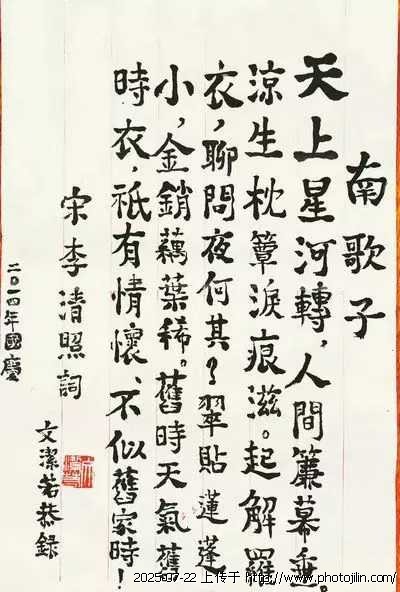 南歌子
天上星河轉，人間簾幕垂。
涼生枕簟淚痕滋。起解羅
衣，聊問夜何其？翠貼蓮蓬
小，金銷藕葉稀。舊時天氣舊
時衣，祇有情懷、不似舊家時！
宋李清照詞
文潔若恭錄
二〇一四年國慶
2025-07-22 上传于 http://www.photojilin.com